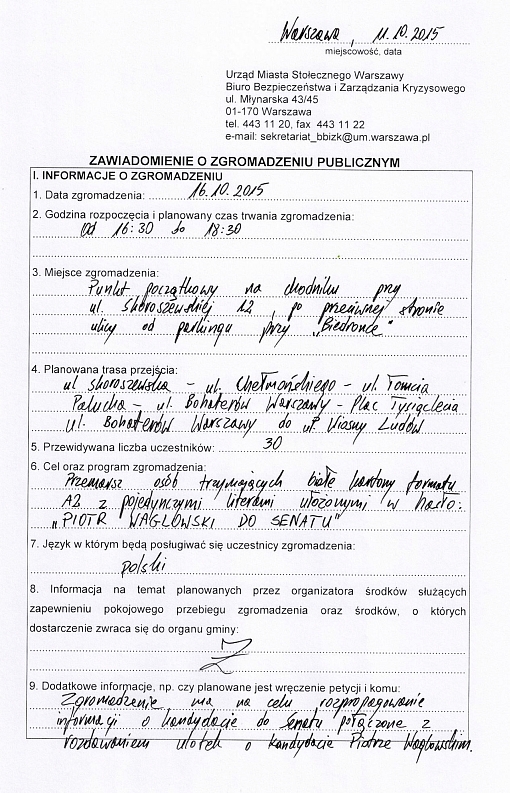 Warszawa, 11.10.2015
miejscowość, data
Urząd Miasta Stołecznego Warszawy
Biuro Bezpieczeństwa i Zarządzania Kryzysowego
ul. Młynarska 43/45
01-170 Warszawa
tel. 443 11 20, fax 443 11 22
e-mail: sekretariat_bbizk@um.warszawa.pl
ZAWIADOMIENIE O ZGROMADZENIU PUBLICZNYM
I. INFORMACJE O ZGROMADZENIU
1. Data zgromadzenia: 16.10.2015
2. Godzina rozpoczęcia i planowany czas trwania zgromadzenia:
od 16:30 do 18:30
3. Miejsce zgromadzenia:
Punkt początkowy na chodniku przy
ul. Skoroszewskiej 12, po przeciwnej stronie
ulicy od parkingu przy „Biedronce"
4. Planowana trasa przejścia:
ul Skoroszewska - ul. Chełmońskiego - ul. Tomcia
Palucha - ul. Bohaterów Warszawy - Plac Tysiąclecia
ul. Bohaterów Warszawy do Wiosny Ludów
5. Przewidywana liczba uczestników: 30
6. Cel oraz program zgromadzenia:
Przemarsz osób trzymających białe kartony formatu
A2 z pojedynczymi literami ułożonymi w hasło:
„PIOTR WAGLOWSKI DO SENATU"
7. Język w którym będą posługiwać się uczestnicy zgromadzenia:
polski
8. Informacja na temat planowanych przez organizatora środków służących
zapewnieniu pokojowego przebiegu zgromadzenia oraz środków, o których
dostarczenie zwraca się do organu gminy:
9. Dodatkowe informacje, np. czy planowane jest wręczenie petycji i komu:
Zgromadzenie ma na celu rozpropagowanie
informacji o kandydacie do Senatu połączone z
rozdawaniem ulotek o kandydacie Piotrze Waglowskim.